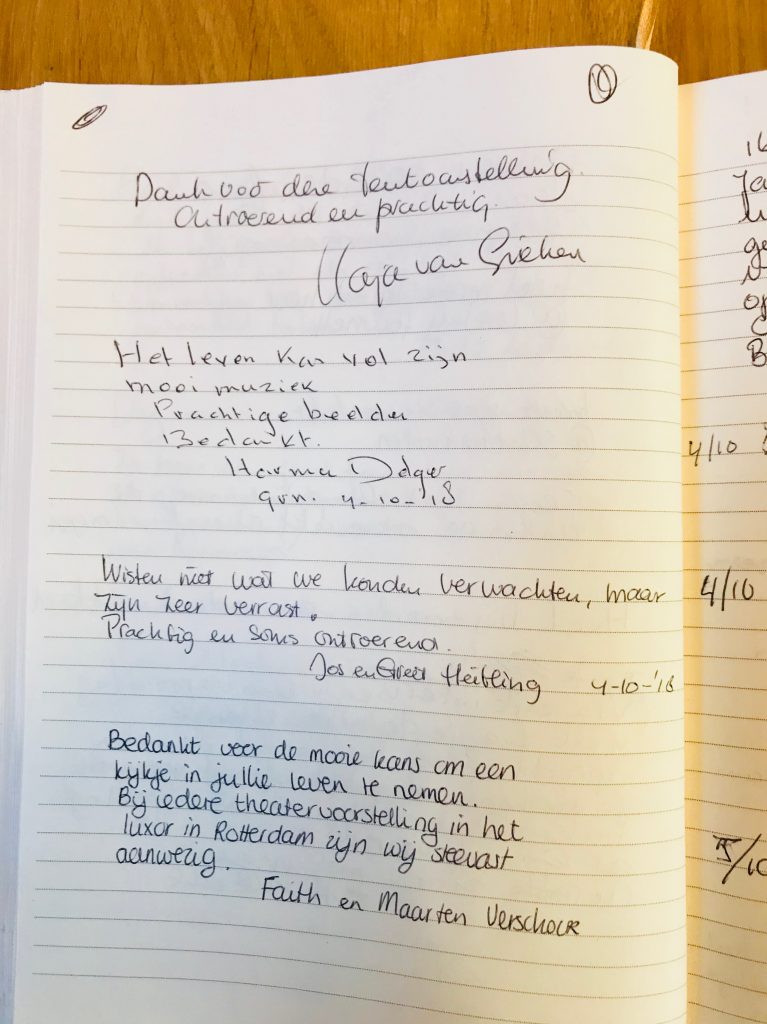 Dank voor deze tentoonstelling.
Ontroerend en prachtig.
van Grieken
Het leven kan vol zijn
mooi muziek
Prachtige beelden
Bedankt.
Harma Dolger
grn. 4-10-'18
Wisten niet wat we konden verwachten, maar
zijn zeer verrast.
Prachtig en soms ontroerend.
Jos en Greet Heibling 4-10-'18
Bedankt voor de mooie kans om een
kijkje in jullie leven te nemen.
Bij iedere theatervoorstelling in het
luxor in Rotterdam zijn wij steevast
aanwezig.
Faith en Maarten Verschoor
4/10
4/10